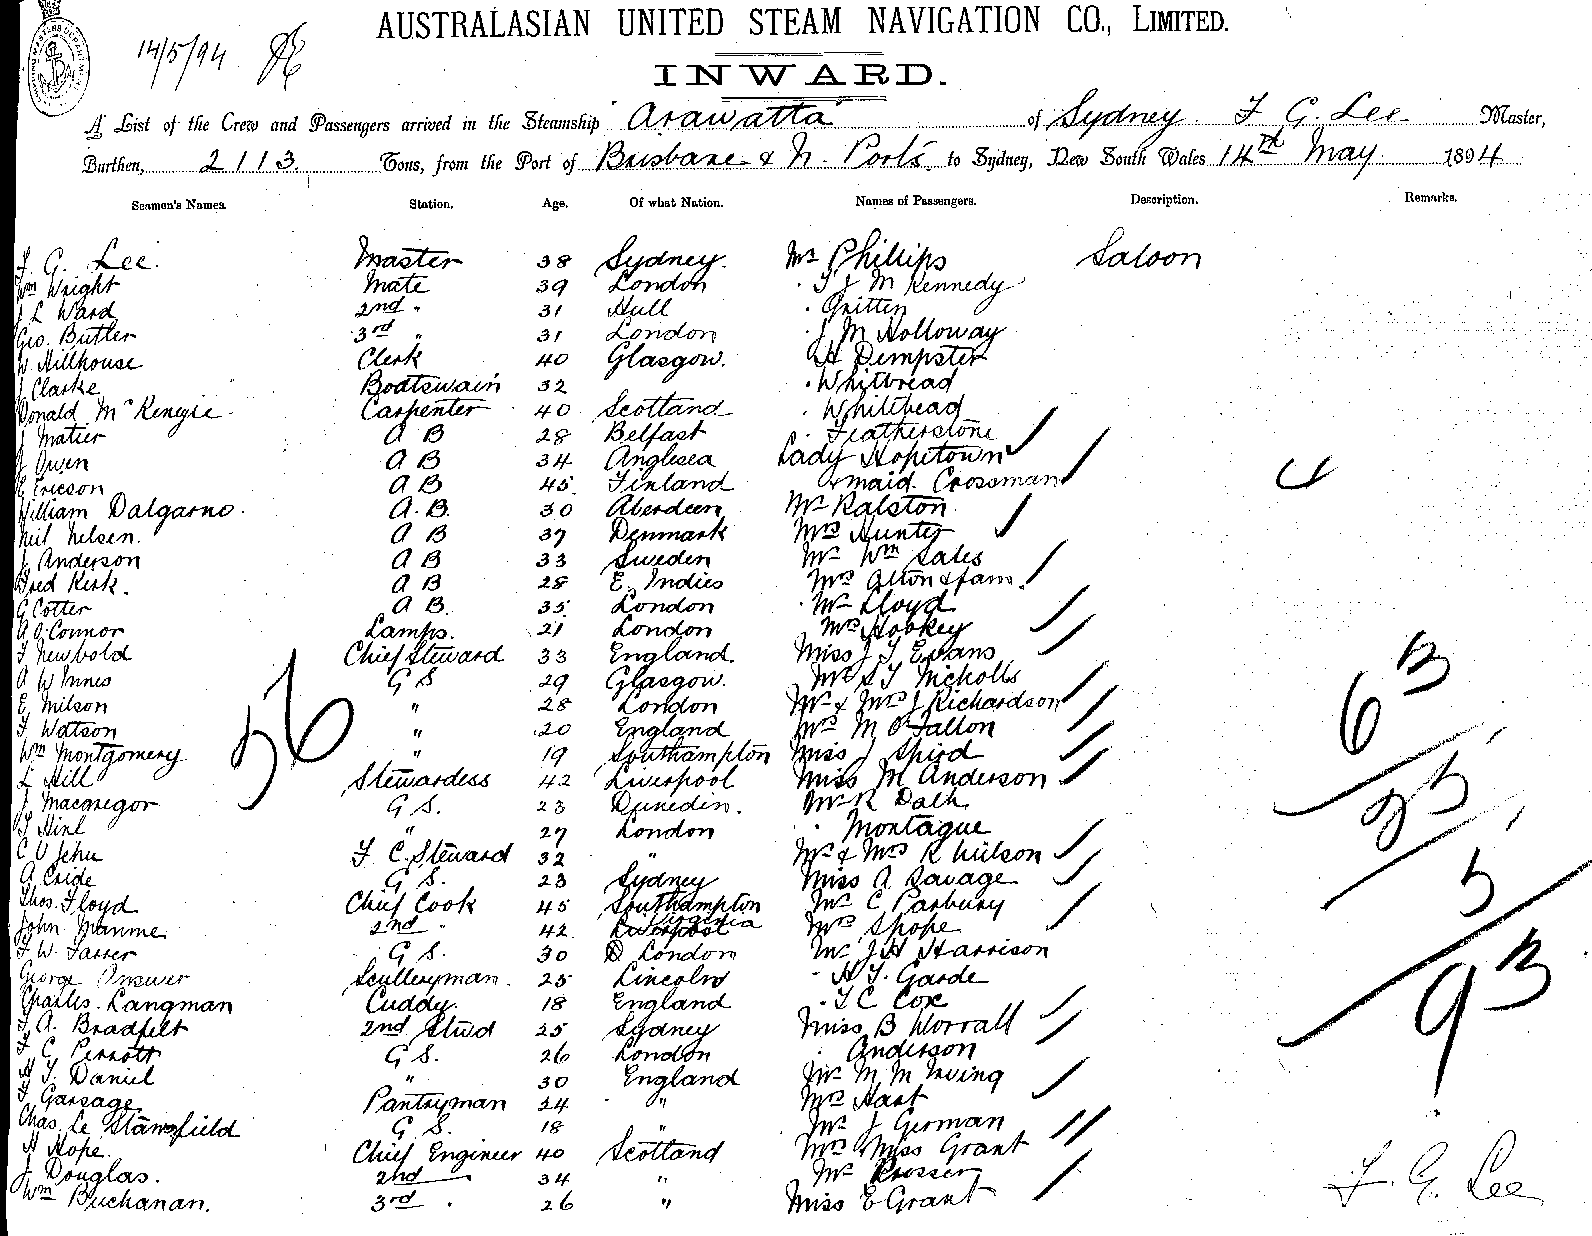 AUSTRALASIAN UNITED STEAM NAVIGATION CO., LIMITED.
14/5/94
INWARD.
A List of the Crew and Passengers arrived in the Steamship "Arawatta" of Sydney F. G. Lee Master,
Burthen, 2113 Tons, from the Port of Brisbane & N. Ports to Sydney, New South Wales 14th May 1894
Seamen's Names. Station. Age. Of what Nation. Names of Passengers. Description. Remarks.
F. G. Lee. Master 38 Sydney. Mr Phillips Saloon
Wm Wright Mate 39 London " F J M Kennedy
J L Ward 2nd " 31 Hull " Gritten
Geo. Butler 3rd " 31 London " J M Holloway
W Hillhouse Clerk 40 Glasgow. " H Dempster
J Clarke Boatswain 32 " Whitbread
Donald McKenzie Carpenter 40 Scotland " Whitehead
J Matier A B 28 Belfast " Featherstone
J Owen A B 34 Anglesea Lady Hopetown
E Ericson A B 45 Finland & maid Crossman
William Dalgarno. A. B. 30 Aberdeen Mr Ralston
Neil Nelsen. A B 37 Denmark Mrs Hunter
J Anderson A B 33 Sweden Mr Wm Sales
Fred Kirk. A B 28 E. Indies Mrs Alton & fam.
G Cotter A B. 35 London Mr Lloyd
A O'Connor Lamps. 21 London Mrs Hobkey
F Newbold Chief Steward 33 England. Miss J F Evans
A W Innes G S 29 Glasgow. Mr S F Nicholls
E. Milson " 28 London Mr & Mrs J Richardson
F Watson " 20 England Mrs M O'Fallon
Wm Montgomery " 19 Southampton Miss J Spird
L Hill Stewardess 42 Liverpool Miss M Anderson
J. Macgregor G S. 23 Dunedin. Mr R Dalh
" 27 London " Montague
C V Jehu F. C. Steward 32 " Mr & Mrs R Wilson
A Cride G S. 23 Sydney Miss A Savage
Thos. Floyd Chief Cook 45 Southampton Mr C Parbury
John Manme 2nd " 42 Virginia Mrs Spope
F. W. Farrer G S. 30 London Mr J H Harrison
George Answer Sculleryman. 25 Lincoln " H F. Garde
Charles Langman Cuddy. 18 England " F C Cox
F A. Bradfelt 2nd Stwd 25 Sydney Miss B Worrall
F C Perrott G S. 26 London " Anderson
H J. Daniel " 30 England Mr M M Irving
F Garsage Pantryman 24 " Mrs Hart
Chas. Le Stansfield G S. 18 " Mr J German
H Hope. Chief Engineer 40 Scotland Mrs Miss Grant
J Douglas. 2nd 34 " Mr Prosser
Wm Buchanan. 3rd " 26 " Miss E Grant
56
4
63
25
5
93
F. G. Lee